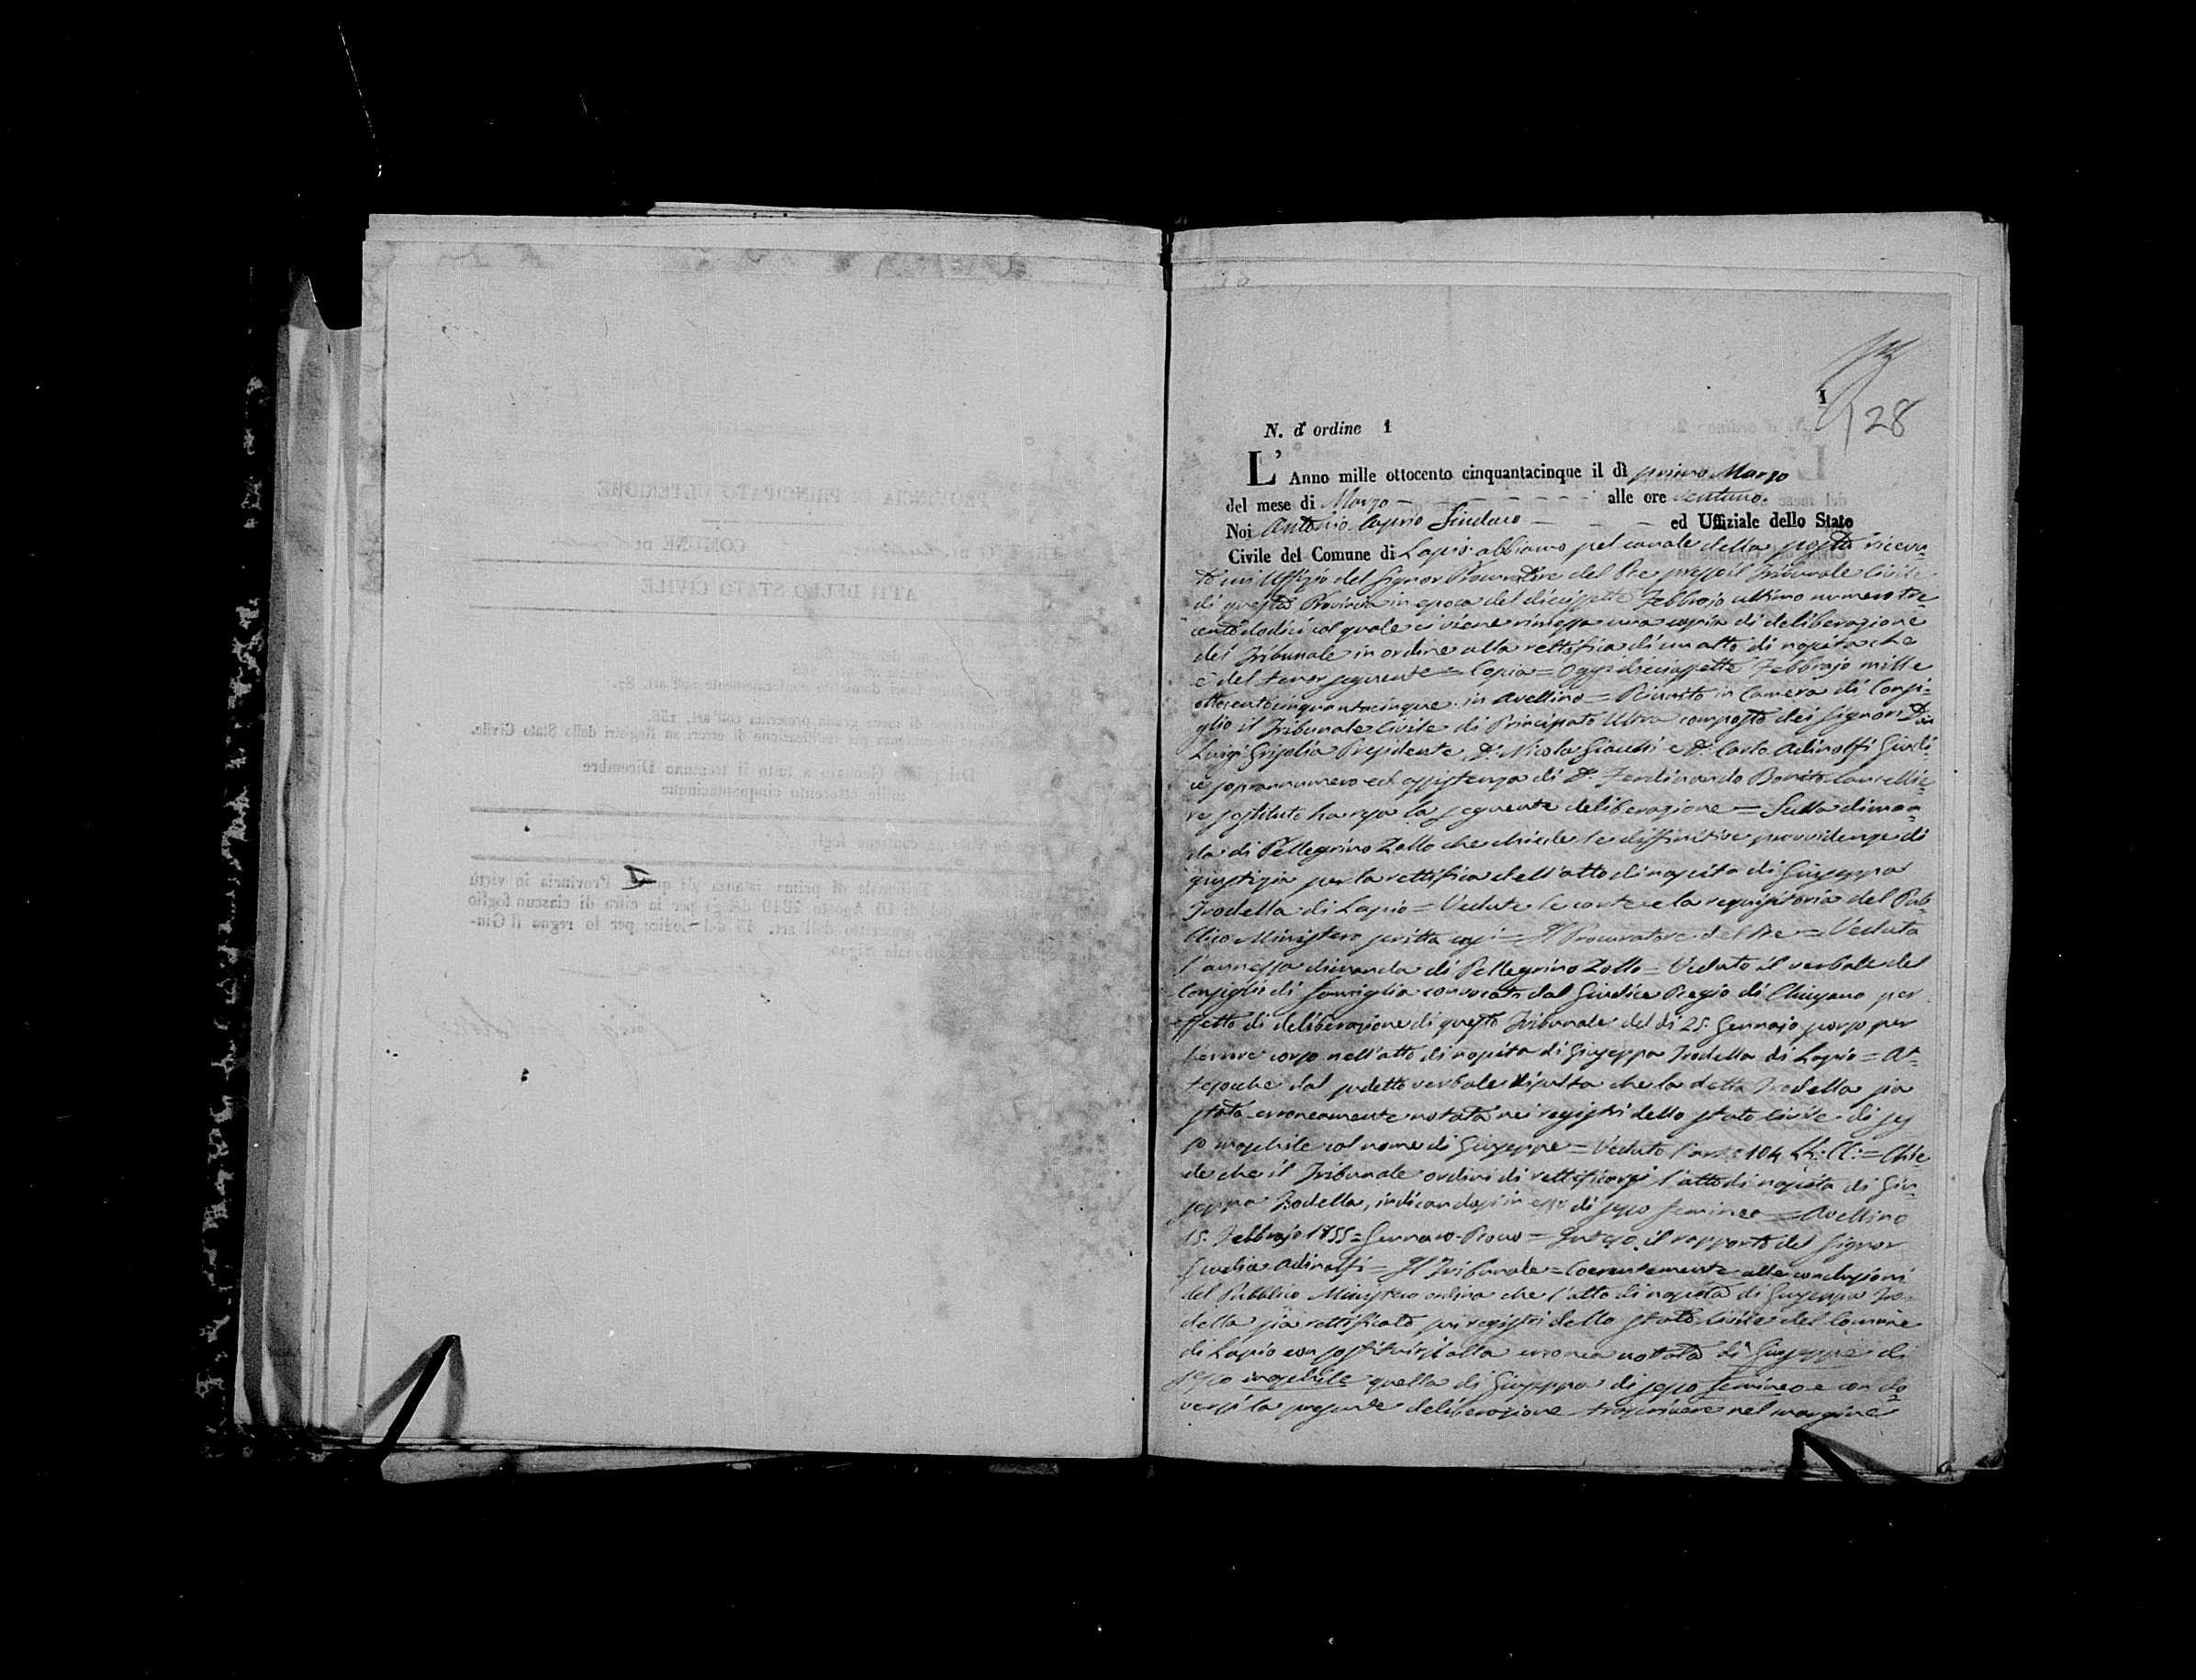 1
128
N. d'ordine 1
L'Anno mille ottocento cinquantacinque il dì primo Marzo
del mese di Marzo alle ore ventuno.
Noi Antonio Caprio Sindaco ed Uffiziale dello Stato
Civile del Comune di Lapio abbiamo pel canale della posta ricevu-
to un Uffizio del Signor Procuratore del Re presso il Tribunale Civile
di questa Provincia in epoca del diciassette Febbrajo ultimo numero tre-
centododici col quale ci viene rimessa una copia di deliberazione
del Tribunale in ordine alla rettifica di un atto di nascita che
è del tenor seguente = Copia = Oggi diciassette Febbrajo mille
ottocentocinquantacinque in Avellino = Riunito in Camera di Consi-
glio il Tribunale Civile di Principato Ultra composto dei Signori Don
Luigi Grisolia Presidente, D. Nicola e D. Carlo Adinolfi Giudi-
ce soprannumero ed assistenza di D. Ferdinando Bonito Cancellie-
re sostituto ha resa la seguente deliberazione = Sulla diman-
da di Pellegrino Zollo che chiede le diffinitive provvidenze di
giustizia per la rettifica dell'atto di nascita di Giuseppa
Trodella di Lapio = Vedute le carte e la requisitoria del Pub-
blico Ministero scritta così = Il Procuratore del Re = Veduta
l'annessa dimanda di Pellegrino Zollo = Veduto il verbale del
Consiglio di famiglia convocato dal Giudice Regio di Chiusano per
effetto di deliberazione di questo Tribunale del dì 25 Gennajo scorso per
l'errore corso nell'atto di nascita di Giuseppa Trodella di Lapio = At-
tesocche dal sudetto verbale risulta che la detta Trodella sia
stata erroneamente notata nei registri dello stato civile di ses
so maschile col nome di Giuseppe = Veduto l'art. 104 LL: CC: = Chie-
de che il Tribunale ordini di rettificarsi l'atto di nascita di Giu-
seppa Trodella, indicandosi in esso di sesso femineo = Avellino
15. Febbrajo 1855 = Gennaro = Inteso il rapporto del Signor
Giudice Adinolfi = Il Tribunale = Coerentemente alle conclusioni
del Pubblico Ministero ordina che l'atto di nascita di Giuseppa Tro-
della sia rettificato sui registri dello stato civile del Comune
di Lapio con sostituirsi alla erronea notata di Giuseppe di
sesso maschile quella di Giuseppa di sesso femineo e con do-
versi la presente deliberazione trascrivere nel margine